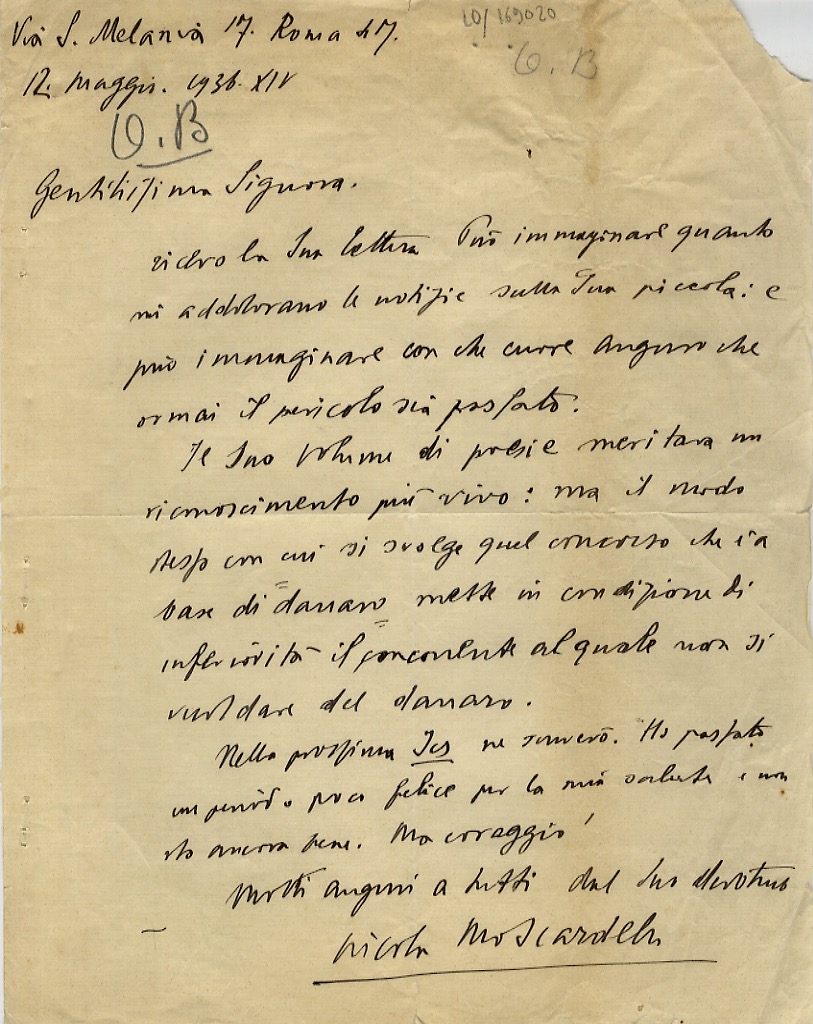 Via S. Melania 17. Roma 47.
LO/169020
O. B
12. Maggio. 1936. XIV
O. B
Gentilissima Signora.
ricevo la Sua lettera Può immaginare quanto
mi addolorano le notizie sulla Sua piccola: e
può immaginare con che cuore auguro che
ormai il pericolo sia passato.
Il Suo volume di poesie meritava un
riconoscimento più vivo: ma il modo
stesso con cui si svolge quel concorso che è a
base di danaro mette in condizione di
inferiorità il concorrente al quale non si
vuol dare del danaro.
Nella prossima Ics ne scriverò. Ho passato
un periodo poco felice per la mia salute e non
sto ancora bene. Ma coraggio!
Molti auguri a tutti dal Suo devotmo
Nicola Moscardelli